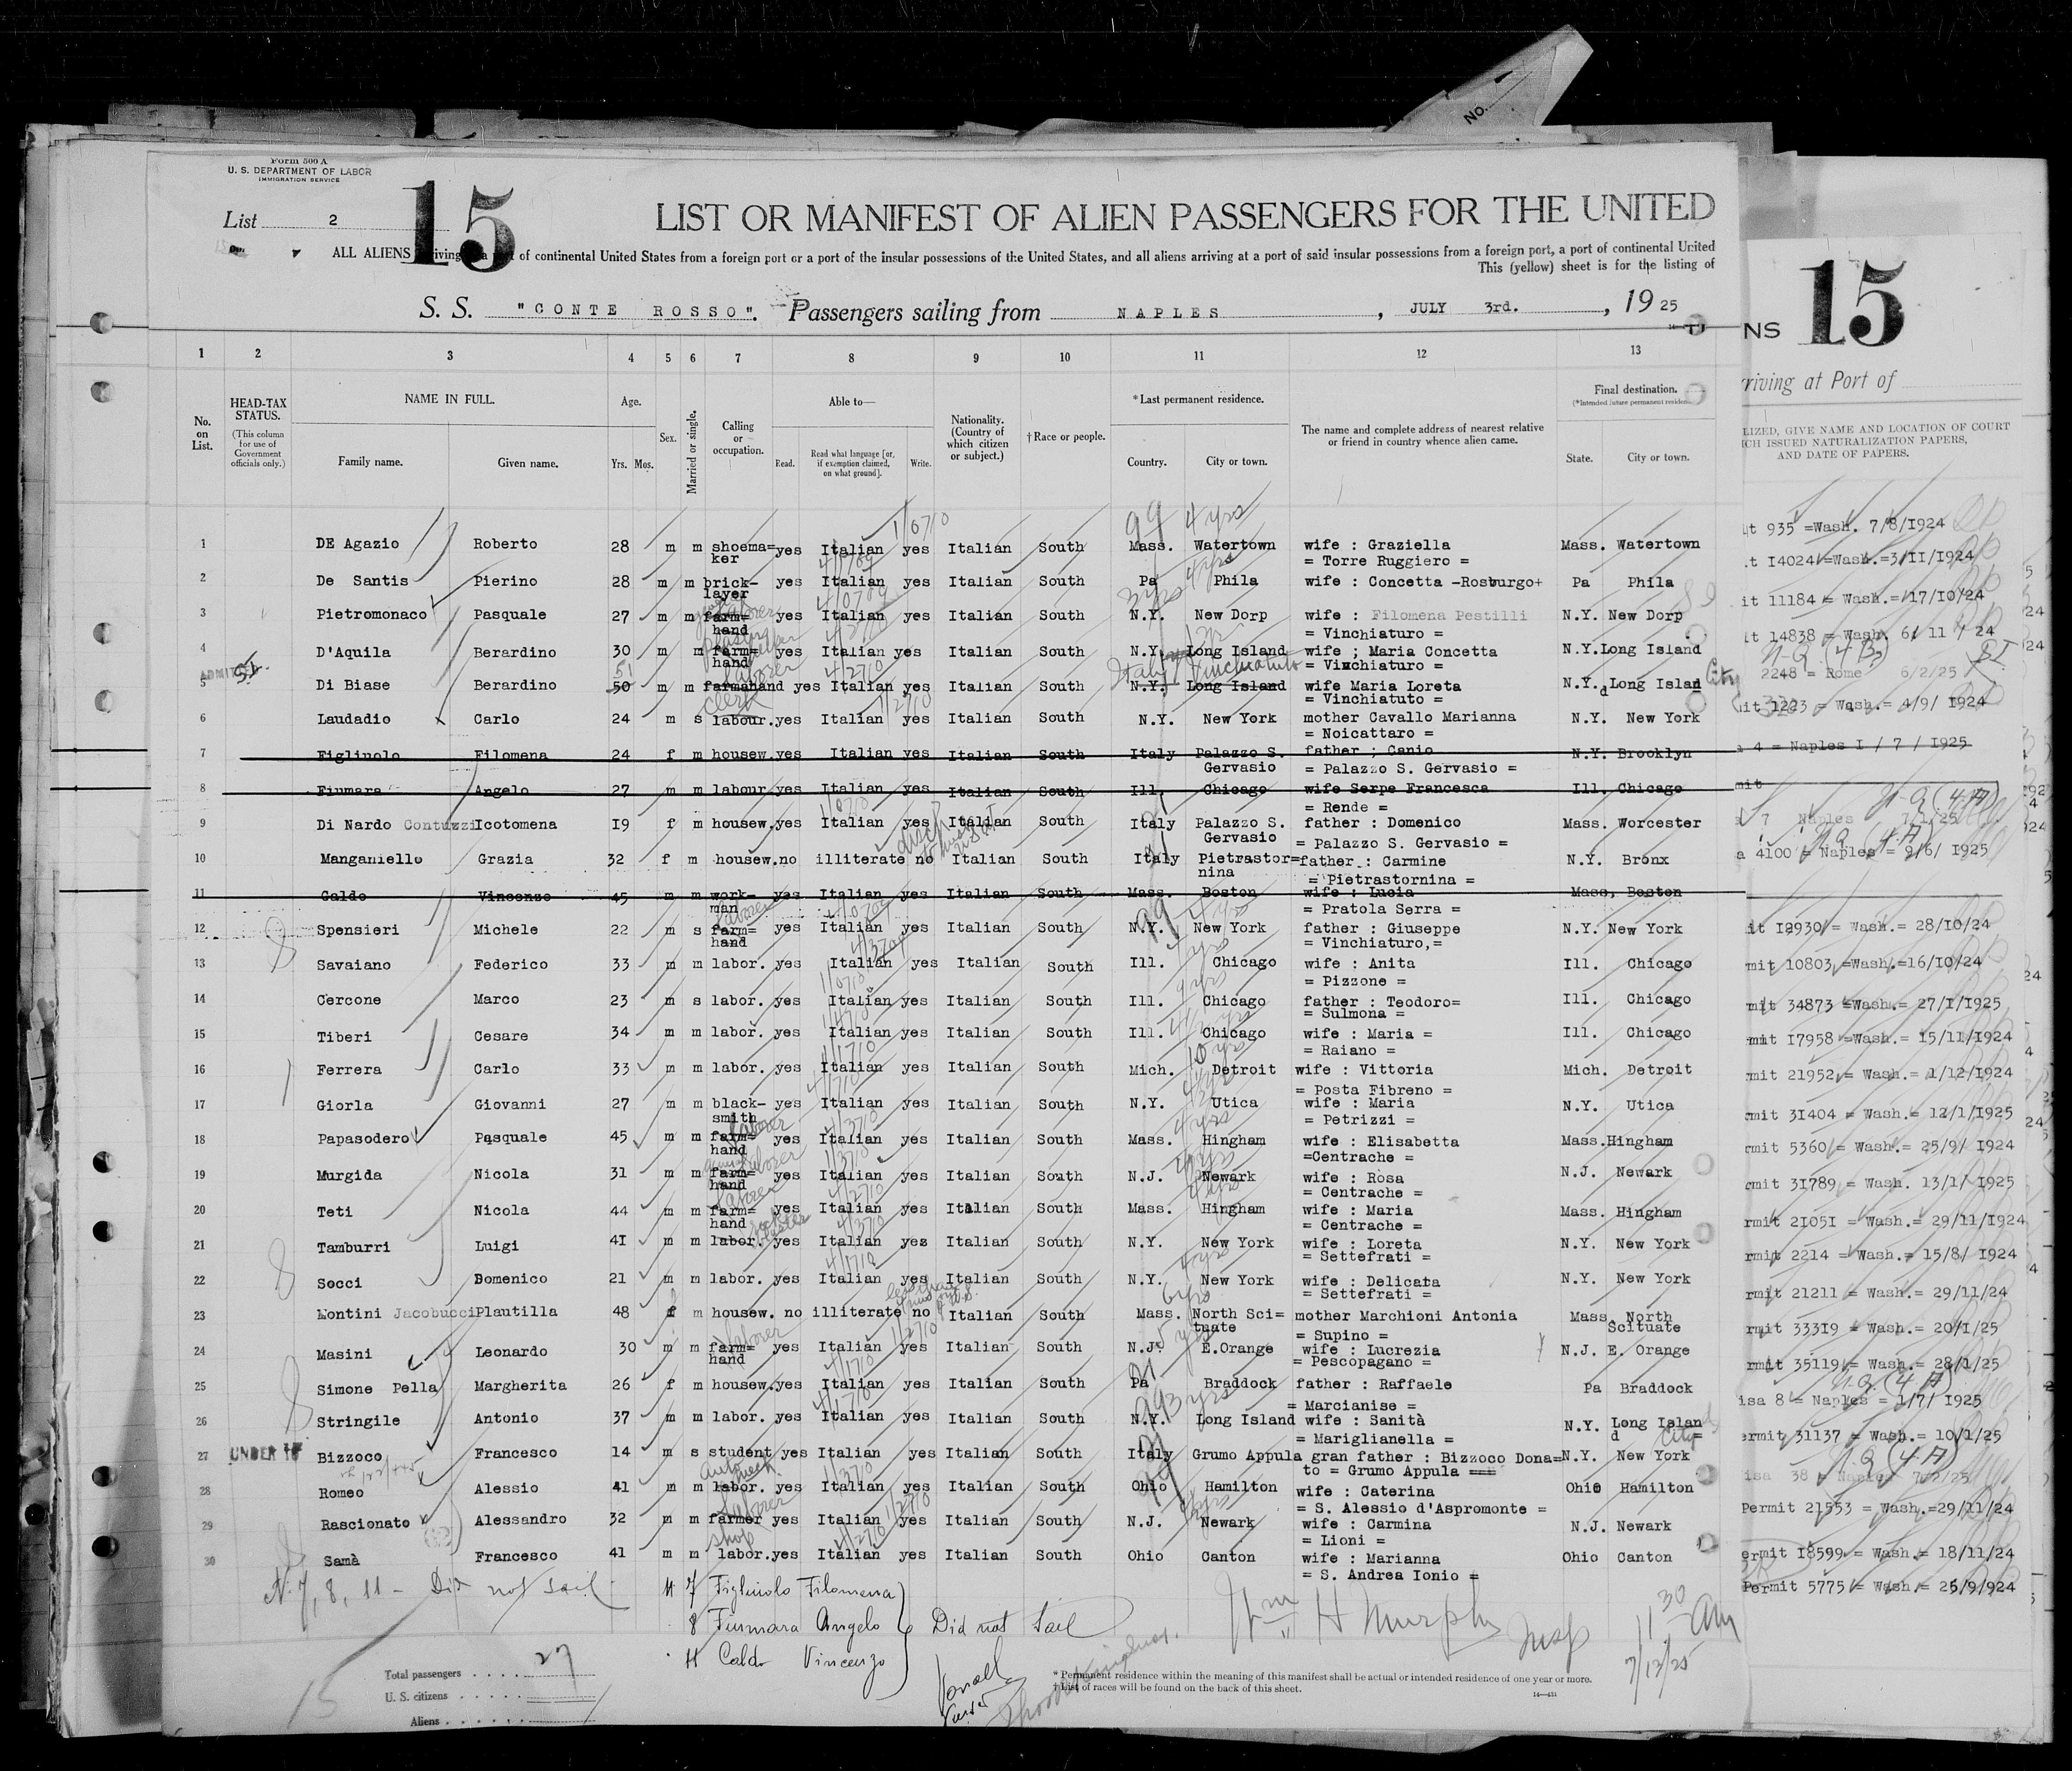 No.
Form 500 A
U. S. DEPARTMENT OF LABOR
IMMIGRATION SERVICE
15
List 2
LIST OR MANIFEST OF ALIEN PASSENGERS FOR THE UNITED
ALL ALIENS of continental United States from a foreign port or a port of the insular possessions of the United States, and all aliens arriving at a port of said insular possessions from a foreign port, a port of continental United
This (yellow) sheet is for the listing of
S. S. "CONTE ROSSO". Passengers sailing from NAPLES, JULY 3rd., 1925
1 2 3 4 5 6 7 8 9 10 11 12 13
No. on List.
HEAD-TAX STATUS.
(This column for use of Government officials only.)
NAME IN FULL.
Family name. Given name.
Age.
Yrs. Mos.
Sex.
Married or single.
Calling or occupation.
Able to—
Read. Read what language [or, if exemption claimed, on what ground]. Write.
Nationality. (Country of which citizen or subject.)
†Race or people.
*Last permanent residence.
Country. City or town.
The name and complete address of nearest relative or friend in country whence alien came.
Final destination.
(*Intended future permanent residence.)
State. City or town.
1 DE Agazio Roberto 28 m m shoema= ker yes Italian yes Italian South Mass. Watertown wife : Graziella = Torre Ruggiero = Mass. Watertown
2 De Santis Pierino 28 m m brick- layer yes Italian yes Italian South Pa Phila wife : Concetta -Rosburgo+ Pa Phila
3 Pietromonaco Pasquale 27 m m farm= hand yes Italian yes Italian South N.Y. New Dorp wife : Filomena Pestilli = Vinchiaturo = N.Y. New Dorp
4 D'Aquila Berardino 30 m m farm= hand yes Italian yes Italian South N.Y. Long Island wife ; Maria Concetta = Vinchiaturo = N.Y. Long Island
5 ADMITTED Di Biase Berardino 50 51 m m farmahand laborer yes Italian yes Italian South N.Y. Long Island Italy Vinchiatuto wife Maria Loreta = Vinchiatuto = N.Y. Long Island City
6 Laudadio Carlo 24 m s labour. clerk yes Italian yes Italian South N.Y. New York mother Cavallo Marianna = Noicattaro = N.Y. New York
7 Figliuolo Filomena 24 f m housew. yes Italian yes Italian South Italy Palazzo S. Gervasio father ; Canio = Palazzo S. Gervasio = N.Y. Brooklyn
8 Fiumara Angelo 27 m m labour yes Italian yes Italian South Ill. Chicago wife Serpe Francesca = Rende = Ill. Chicago
9 Di Nardo Contuzzi Icotomena I9 f m housew. yes Italian yes Italian South Italy Palazzo S. Gervasio father : Domenico = Palazzo S. Gervasio = Mass. Worcester
10 Manganiello Grazia 32 f m housew. no illiterate no Italian South Italy Pietrastor= nina father : Carmine = Pietrastornina = N.Y. Bronx
11 Caldo Vincenzo 45 m m work- man yes Italian yes Italian South Mass. Boston wife : Lucia = Pratola Serra = Mass, Boston
12 Spensieri Michele 22 m s farm= hand laborer yes Italian yes Italian South N.Y. New York father : Giuseppe = Vinchiaturo,= N.Y. New York
13 Savaiano Federico 33 m m labor. yes Italian yes Italian South Ill. Chicago wife : Anita = Pizzone = Ill. Chicago
14 Cercone Marco 23 m s labor. yes Italian yes Italian South Ill. Chicago father : Teodoro= = Sulmona = Ill. Chicago
15 Tiberi Cesare 34 m m labor. yes Italian yes Italian South Ill. Chicago wife : Maria = = Raiano = Ill. Chicago
16 Ferrera Carlo 33 m m labor. yes Italian yes Italian South Mich. Detroit wife : Vittoria = Posta Fibreno = Mich. Detroit
17 Giorla Giovanni 27 m m black- smith yes Italian yes Italian South N.Y. Utica wife : Maria = Petrizzi = N.Y. Utica
18 Papasodero Pasquale 45 m m farm= hand laborer yes Italian yes Italian South Mass. Hingham wife : Elisabetta =Centrache = Mass. Hingham
19 Murgida Nicola 31 m m farm= hand laborer yes Italian yes Italian South N.J. Newark wife : Rosa = Centrache = N.J. Newark
20 Teti Nicola 44 m m farm= hand laborer yes Italian yes Italian South Mass. Hingham wife : Maria = Centrache = Mass. Hingham
21 Tamburri Luigi 4I m m labor. yes Italian yes Italian South N.Y. New York wife : Loreta = Settefrati = N.Y. New York
22 Socci Domenico 21 m m labor. yes Italian yes Italian South N.Y. New York wife : Delicata = Settefrati = N.Y. New York
23 Montini Jacobucci Plautilla 48 f m housew. no illiterate no Italian South Mass. North Sci= tuate mother Marchioni Antonia = Supino = Mass. North Scituate
24 Masini Leonardo 30 m m farm= hand laborer yes Italian yes Italian South N.J. E.Orange wife : Lucrezia = Pescopagano = N.J. E. Orange
25 Simone Pella Margherita 26 f m housew. yes Italian yes Italian South Pa Braddock father : Raffaele = Marcianise = Pa Braddock
26 Stringile Antonio 37 m m labor. yes Italian yes Italian South N.Y. Long Island wife : Sanità = Mariglianella = N.Y. Long Island City
27 UNDER 16 Bizzoco Francesco 14 m s student yes Italian yes Italian South Italy Grumo Appula gran father : Bizzoco Dona= to = Grumo Appula === N.Y. New York
28 Romeo Alessio 41 m m labor. auto mech. yes Italian yes Italian South Ohio Hamilton wife : Caterina = S. Alessio d'Aspromonte = Ohio Hamilton
29 Rascionato Alessandro 32 m m farmer laborer yes Italian yes Italian South N.J. Newark wife : Carmina = Lioni = N.J. Newark
30 Samà Francesco 41 m m shop labor. yes Italian yes Italian South Ohio Canton wife : Marianna = S. Andrea Ionio = Ohio Canton
N. 7, 8, 11 - Did not sail
7 Figliuolo Filomena
8 Fiumara Angelo Did not Sail
11 Caldo Vincenzo
Wm H Murphy Insp
11 30 AM
7/12/25
Total passengers 27
U. S. citizens
Aliens
15
* Permanent residence within the meaning of this manifest shall be actual or intended residence of one year or more.
† List of races will be found on the back of this sheet.
14—421
NS 15
rriving at Port of
LIZED, GIVE NAME AND LOCATION OF COURT
CH ISSUED NATURALIZATION PAPERS,
AND DATE OF PAPERS.
it 935 =Wash. 7/8/I924
.t I4024 =Wash.=3/II/I924
it 11184 = Wash.= 17/10/24
it 14838 = Wash. 6/ 11 / 24
2248 = Rome 6/2/25
it 1223 = Wash.= 4/9/ I924
a 4 = Naples I / 7 / I925
mit
7 Naples 7/1/25
a 4100 = Naples = 9/6/ I925
it I2930 = Wash.= 28/I0/24
mit 10803 =Wash.=16/10/24
mit 34873 =Wash.= 27/I/I925
mit I7958 =Wash.= I5/11/I924
mit 21952 = Wash.= 1/12/I924
rmit 3I404 = Wash.= 12/1/I925
rmit 5360 = Wash.= 25/9/ I924
rmit 3I789 = Wash. 13/1/ I925
rmit 2I05I = Wash.= 29/11/I924
rmit 2214 = Wash.= 15/8/ I924
rmit 21211 = Wash.= 29/11/24
rmit 333I9 = Wash.= 20/I/25
rmit 35119 = Wash.= 28/1/25
isa 8 = Naples = 1/7/ I925
ermit 31137 = Wash.= 10/1/25
isa 38 = Naples 7/2/25
Permit 21553 = Wash.=29/11/24
ermit I8599 = Wash.= 18/11/24
Permit 5775 = Wash = 25/9/924